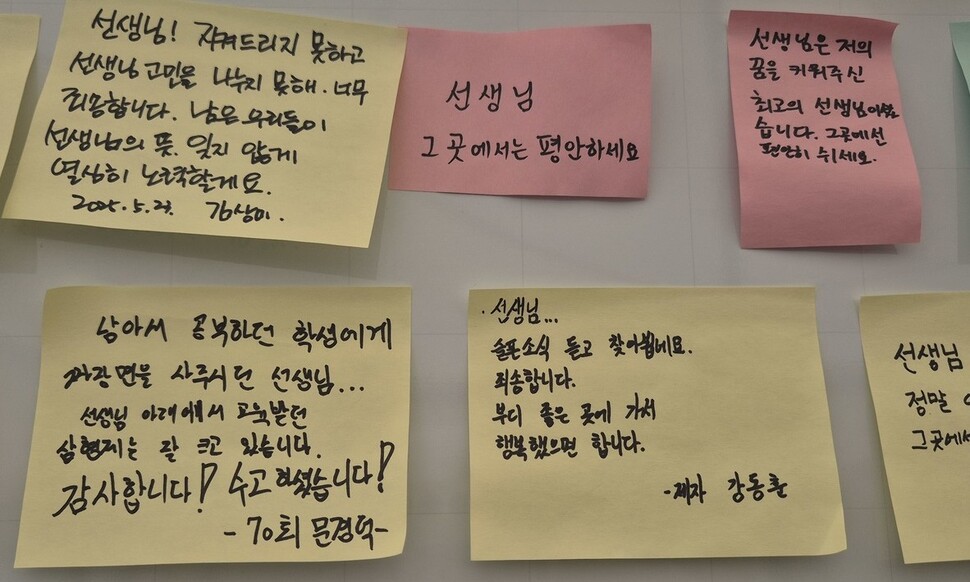 선생님! 지켜드리지 못하고
선생님 고민을 나누지 못해. 너무
죄송합니다. 남은 우리들이
선생님의 뜻. 잊지 않게
열심히 노력할게요.
2025. 5. 23. 김상미.
선생님
그 곳에서는 평안하세요
선생님은 저의
꿈을 키워주신
최고의 선생님이셨
습니다. 그곳에선
편안히 쉬세요.
남아서 공부하던 학생에게
짜장면을 사주시던 선생님...
선생님 아래에서 교육받던
삼형제는 잘 크고 있습니다.
감사합니다! 수고하셨습니다!
-70회 문경덕-
·선생님...
슬픈소식 듣고 찾아뵙네요.
죄송합니다.
부디 좋은 곳에 가서
행복했으면 합니다.
-제자 강동훈
선생님
정말
그곳에서